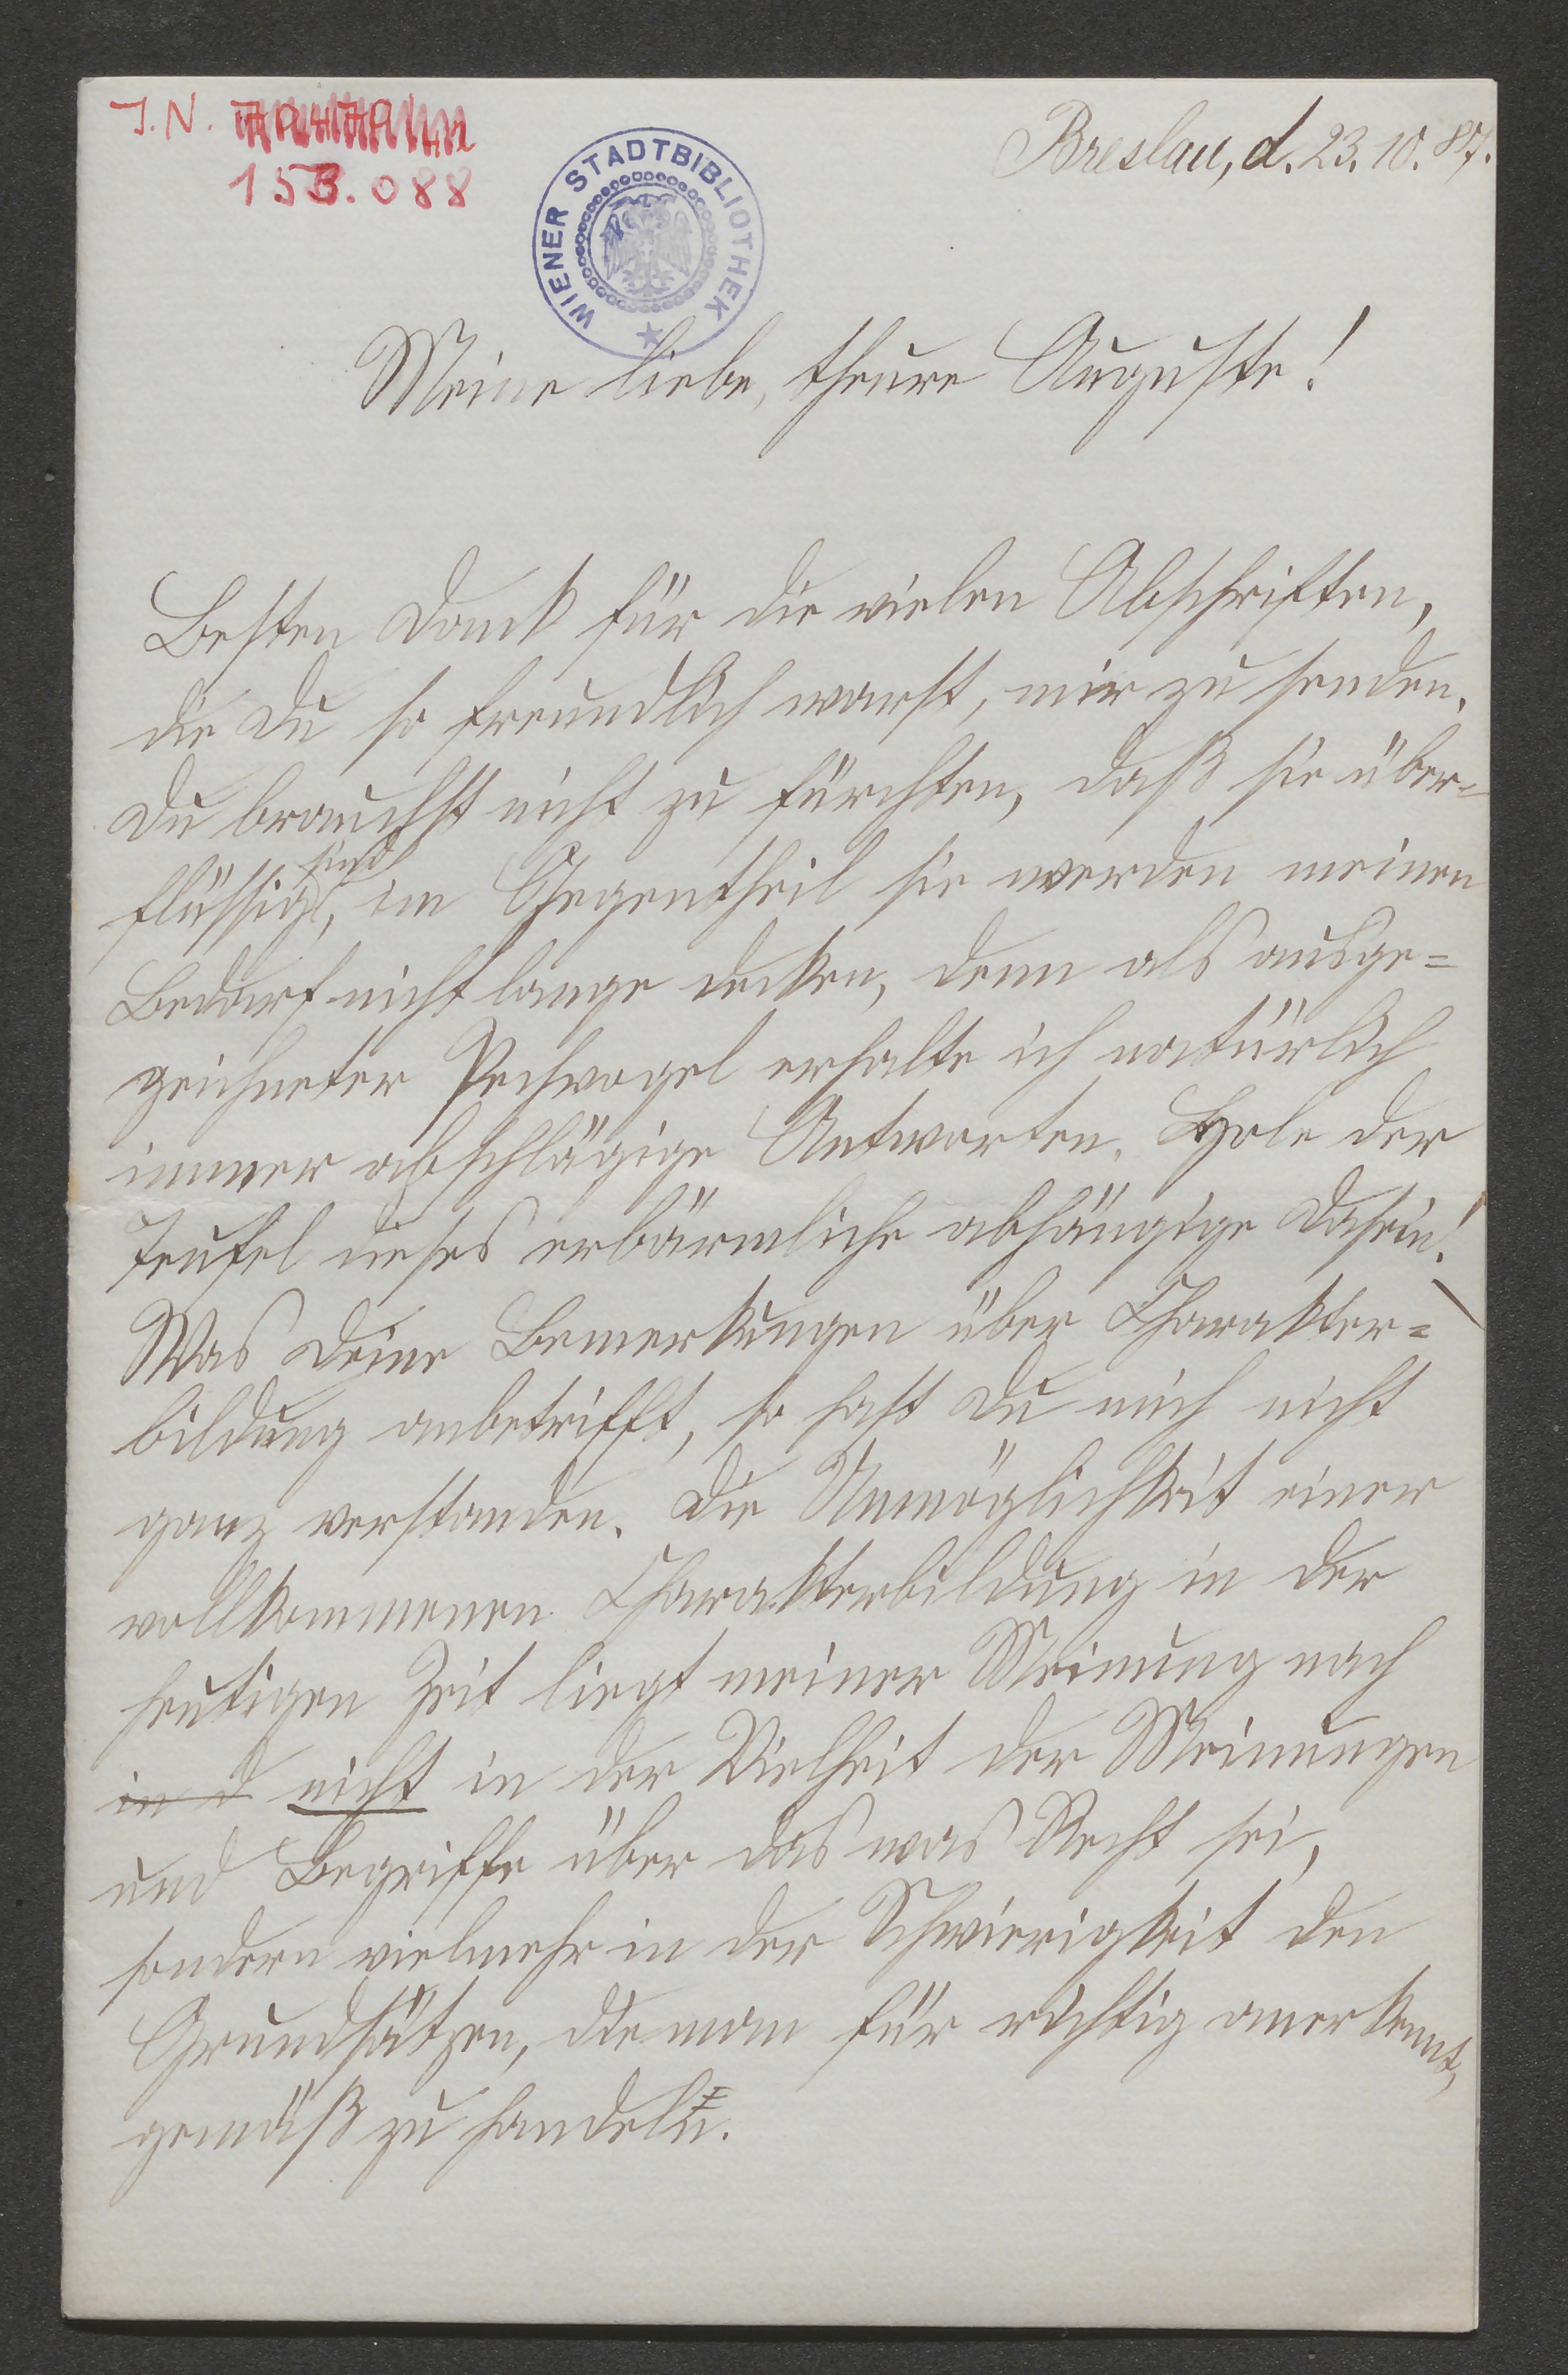 J.N.
153.088
WIENER STADTBIBLIOTHEK
Breslau, d. 23. 10. 87.
Meine liebe, theure Auguste!
Besten Dank für die vielen Abschriften,
die Du so freundlich warst, mir zu senden.
Du brauchst nicht zu fürchten, daß sie über-
flüssig sind, im Gegentheil sie werden meinen
Bedarf nicht lange decken, denn als ausge=
zeichneter Pechvogel erhalte ich natürlich
immer abschlägige Antworten. Hole der
Teufel dieses erbärmliche abhängige Dasein!
Was Deine Bemerkungen über Charakter=
bildung anbetrifft, so hast Du mich nicht
ganz verstanden. Die Unmöglichkeit einer
vollkommenen Charakterbildung in der
heutigen Zeit liegt meiner Meinung nach
in d nicht in der Vielheit der Meinungen
und Begriffe über das was Recht sei,
sondern vielmehr in der Schwierigkeit den
Grundsätzen, die man für richtig anerkennt,
gemäß zu handeln.